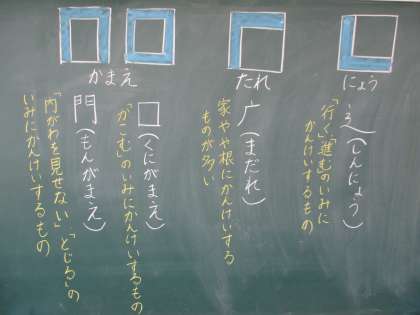 にょう
⻌(しんにょう)
「行く」「進む」のいみに
かんけいするもの
たれ
广(まだれ)
家ややね根にかんけいする
ものが多い
かまえ
囗(くにがまえ)
「かこむ」のいみにかんけいするもの
門(もんがまえ)
「内がわを見せない」「とじる」の
いみにかんけいするもの